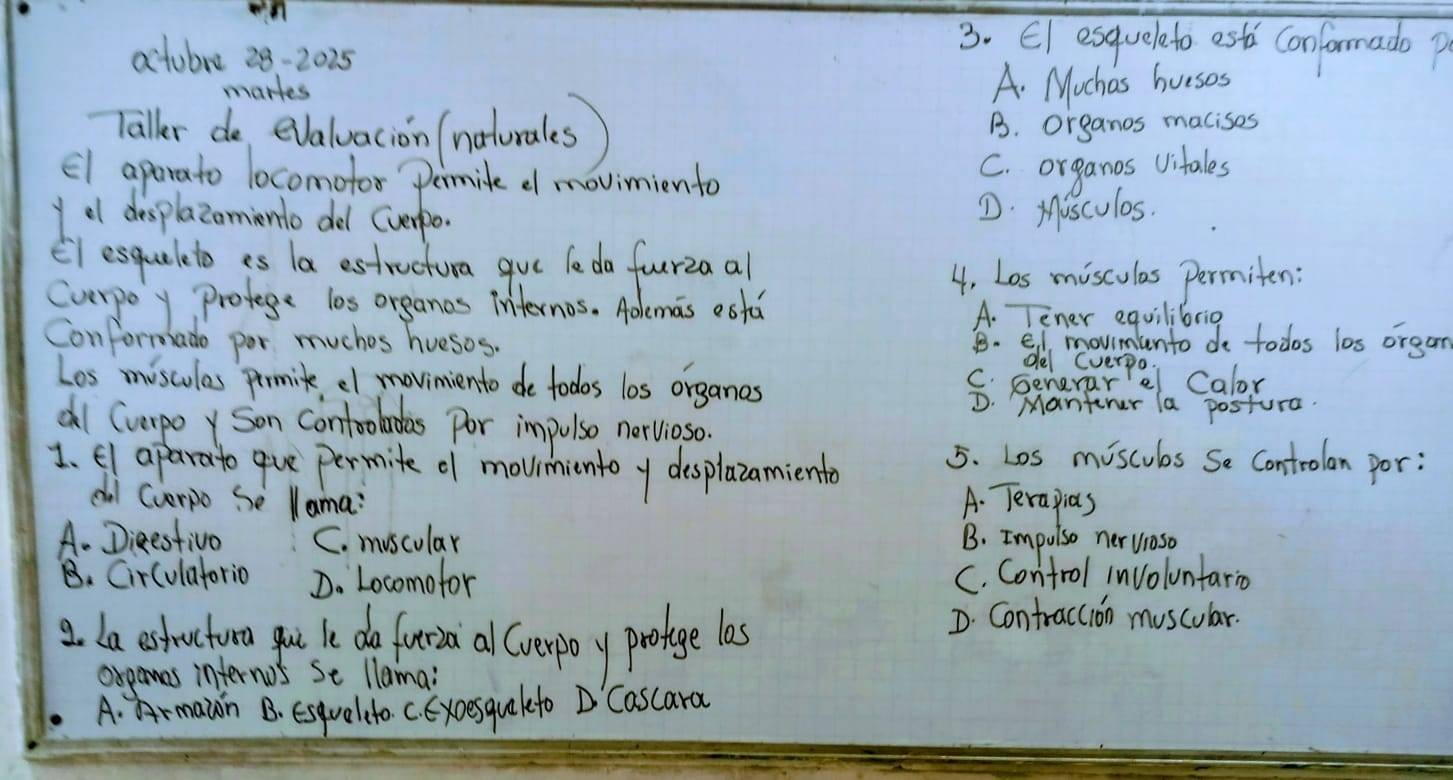 octubre 28-2025
martes
Taller de evaluación (naturales)
El aparato locomotor permite el movimiento
y el desplazamiento del cuerpo.
El esqueleto es la estructura que le da fuerza al
cuerpo y protege los organos internos. Además está
Conformado por muchos huesos.
Los músculos permite el movimiento de todos los órganos
del cuerpo y son controlados por impulso nervioso.
1. El aparato que permite el movimiento y desplazamiento
del cuerpo se llama:
A. Digestivo C. muscular
B. Circulatorio D. Locomotor
2. La estructura que le da fuerza al cuerpo y protege los
organos internos se llama:
A. Armazón B. Esqueleto. C. Exoesqueleto D. Cascara
3. El esqueleto está conformado
A. Muchos huesos
B. Organos macisos
C. organos vitales
D. Músculos.
4. Los músculos permiten:
A. Tener equilibrio
B. El movimiento de todos los órgan
del cuerpo.
C. Generar el calor
D. Mantener la postura.
5. Los músculos se controlan por:
A. Terapias
B. Impulso nervioso
C. Control involuntario
D. Contracción muscular.